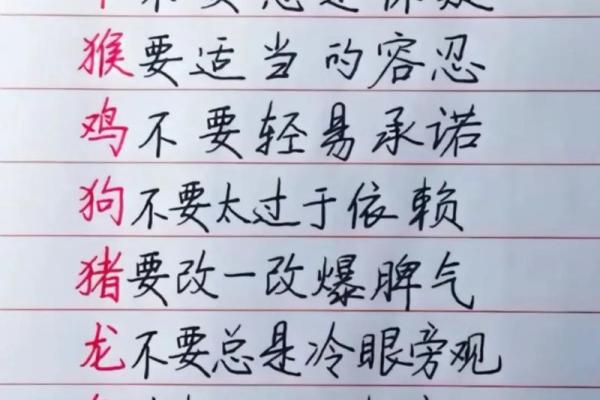 猴要适当的容忍
鸡不要轻易承诺
狗不要太过于依赖
猪要改一改爆脾气
龙不要总是冷眼旁观